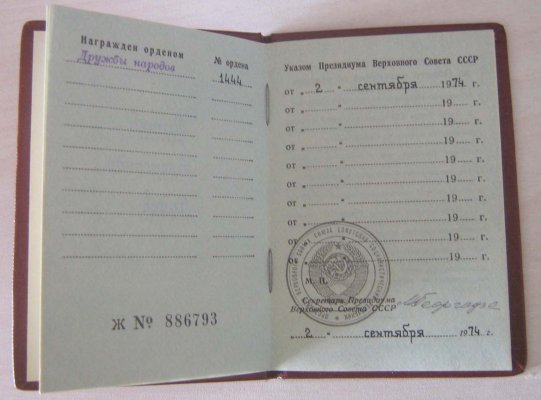 Награжден орденом
№ ордена
Дружбы народов
1444
Ж № 886793
Указом Президиума Верховного Совета СССР
от „ 2 “ сентября 1974 г.
от „ “ 19 г.
от „ “ 19 г.
от „ “ 19 г.
от „ “ 19 г.
от „ “ 19 г.
от „ “ 19 г.
от „ “ 19 г.
от „ “ 19 г.
М. П.
Секретарь Президиума
Верховного Совета СССР
Георгадзе
„ 2 “ сентября 1974 г.